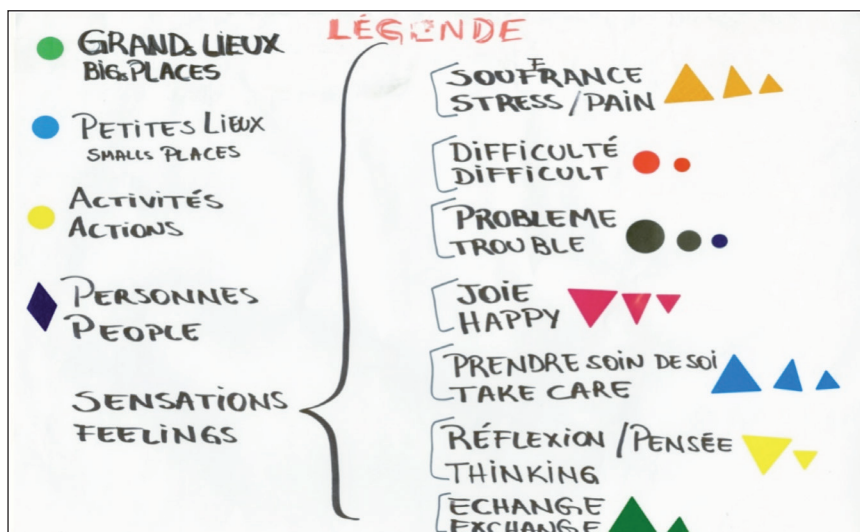 LÉGENDE
GRANDs LIEUX
BIGs PLACES
PETITES LIEUX
SMALLS PLACES
ACTIVITÉS
ACTIONS
PERSONNES
PEOPLE
SENSATIONS
FEELINGS
SOUFFRANCE
STRESS / PAIN
DIFFICULTÉ
DIFFICULT
PROBLEME
TROUBLE
JOIE
HAPPY
PRENDRE SOIN DE SOI
TAKE CARE
RÉFLEXION / PENSÉE
THINKING
ECHANGE
EXCHANGE